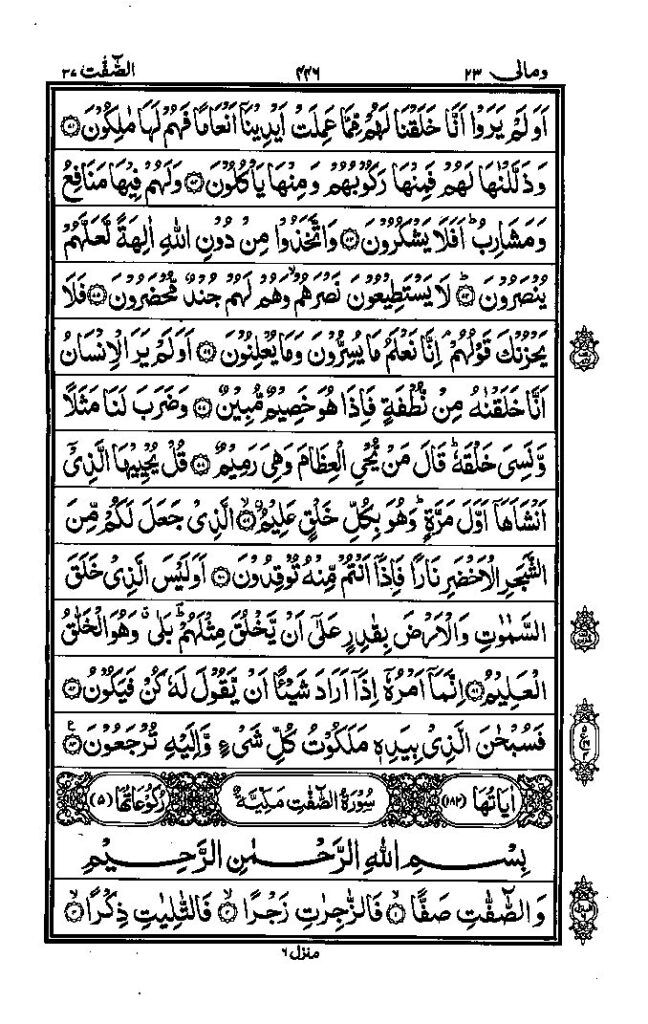 الصّٰفّٰت ٣٧ ٤٤٦ ومالی ٢٣
اَوَلَمْ يَرَوْا اَنَّا خَلَقْنَا لَهُمْ مِّمَّا عَمِلَتْ اَيْدِيْنَاۤ اَنْعَامًا فَهُمْ لَهَا مٰلِكُوْنَ ﴿٧١﴾
وَذَلَّلْنٰهَا لَهُمْ فَمِنْهَا رَكُوْبُهُمْ وَمِنْهَا يَاْكُلُوْنَ ﴿٧٢﴾ وَلَهُمْ فِيْهَا مَنَافِعُ
وَمَشَارِبُ ؕ اَفَلَا يَشْكُرُوْنَ ﴿٧٣﴾ وَاتَّخَذُوْا مِنْ دُوْنِ اللّٰهِ اٰلِهَةً لَّعَلَّهُمْ
يُنْصَرُوْنَ ؕ ﴿٧٤﴾ لَا يَسْتَطِيْعُوْنَ نَصْرَهُمْ ۙ وَهُمْ لَهُمْ جُنْدٌ مُّحْضَرُوْنَ ﴿٧٥﴾ فَلَا
يَحْزُنْكَ قَوْلُهُمْ ۘ اِنَّا نَعْلَمُ مَا يُسِرُّوْنَ وَمَا يُعْلِنُوْنَ ﴿٧٦﴾ اَوَلَمْ يَرَ الْاِنْسَانُ
اَنَّا خَلَقْنٰهُ مِنْ نُّطْفَةٍ فَاِذَا هُوَ خَصِيْمٌ مُّبِيْنٌ ﴿٧٧﴾ وَضَرَبَ لَنَا مَثَلًا
وَّنَسِىَ خَلْقَهٗ ؕ قَالَ مَنْ يُّحْىِ الْعِظَامَ وَهِىَ رَمِيْمٌ ﴿٧٨﴾ قُلْ يُحْيِيْهَا الَّذِىْۤ
اَنْشَاَهَاۤ اَوَّلَ مَرَّةٍ ؕ وَهُوَ بِكُلِّ خَلْقٍ عَلِيْمُ ۙ ﴿٧٩﴾ الَّذِىْ جَعَلَ لَكُمْ مِّنَ
الشَّجَرِ الْاَخْضَرِ نَارًا فَاِذَاۤ اَنْتُمْ مِّنْهُ تُوْقِدُوْنَ ﴿٨٠﴾ اَوَلَيْسَ الَّذِىْ خَلَقَ
السَّمٰوٰتِ وَالْاَرْضَ بِقٰدِرٍ عَلٰۤى اَنْ يَّخْلُقَ مِثْلَهُمْ ؕ بَلٰى ۗ وَهُوَ الْخَلّٰقُ
الْعَلِيْمُ ﴿٨١﴾ اِنَّمَاۤ اَمْرُهٗۤ اِذَاۤ اَرَادَ شَيْـًٔا اَنْ يَّقُوْلَ لَهٗ كُنْ فَيَكُوْنُ ﴿٨٢﴾
فَسُبْحٰنَ الَّذِىْ بِيَدِهٖ مَلَكُوْتُ كُلِّ شَىْءٍ وَّاِلَيْهِ تُرْجَعُوْنَ ﴿٨٣﴾ ع
اٰيَاتُهَا (١٨٢) سُوْرَةُ الصّٰفّٰتِ مَكِّيَّةٌ رُكُوْعَاتُهَا (٥)
بِسْمِ اللّٰهِ الرَّحْمٰنِ الرَّحِيْمِ
وَالصّٰٓفّٰتِ صَفًّا ۙ ﴿١﴾ فَالزّٰجِرٰتِ زَجْرًا ۙ ﴿٢﴾ فَالتّٰلِيٰتِ ذِكْرًا ۙ ﴿٣﴾
منزل ٦